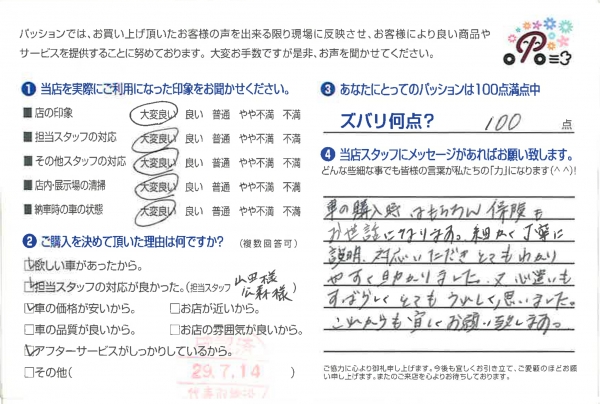 パッションでは、お買い上げ頂いたお客様の声を出来る限り現場に反映させ、お客様により良い商品や
サービスを提供することに努めております。大変お手数ですが是非、お声を聞かせてください。
❶ 当店を実際にご利用になった印象をお聞かせください。
■ 店の印象 大変良い 良い 普通 やや不満 不満
■ 担当スタッフの対応 大変良い 良い 普通 やや不満 不満
■ その他スタッフの対応 大変良い 良い 普通 やや不満 不満
■ 店内・展示場の清掃 大変良い 良い 普通 やや不満 不満
■ 納車時の車の状態 大変良い 良い 普通 やや不満 不満
❷ ご購入を決めて頂いた理由は何ですか? (複数回答可)
☑欲しい車があったから。
☑担当スタッフの対応が良かった。(担当スタッフ 山田様 広森様)
☑車の価格が安いから。 □お店が近いから。
□車の品質が良いから。 □お店の雰囲気が良いから。
☑アフターサービスがしっかりしているから。
□その他( )
29.7.14
❸ あなたにとってのパッションは100点満点中
ズバリ何点? 100 点
❹ 当店スタッフにメッセージがあればお願い致します。
どんな些細な事でも皆様の言葉が私たちの「力」になります(^^)!
車の購入時はもちろん 保険も
お世話になります。細かく丁寧に
説明、対応いただき とてもわかり
やすく助かりました。又 心遣いも
すばらしく とてもうれしく思いました。
これからも宜しくお願い致します。
ご協力に心より御礼申し上げます。今後も宜しくお引き立て、ご愛顧のほどお願
い申し上げます。またのご来店を心よりお待ちしております。